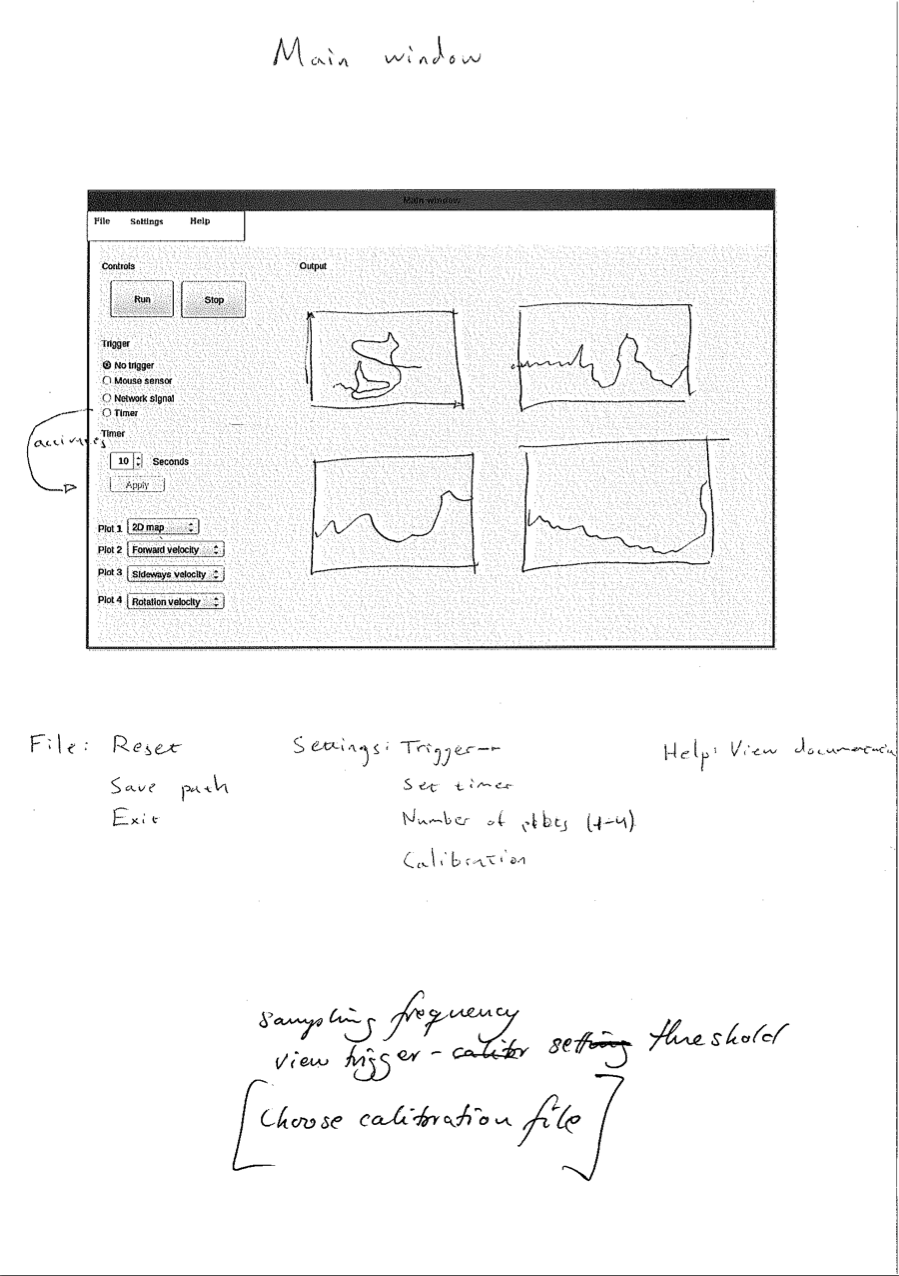 Main window
Main window
File Settings Help
Controls
Output
Run Stop
Trigger
No trigger
Mouse sensor
Network signal
Timer
Timer
10 Seconds
Apply
Plot 1 2D map
Plot 2 Forward velocity
Plot 3 Sideways velocity
Plot 4 Rotation velocity
File: Reset
Save path
Exit
Settings: Trigger
Set timer
Number of (1-4)
Calibration
Help: View
sampling frequency
view trigger - threshold
[Choose calibration file]